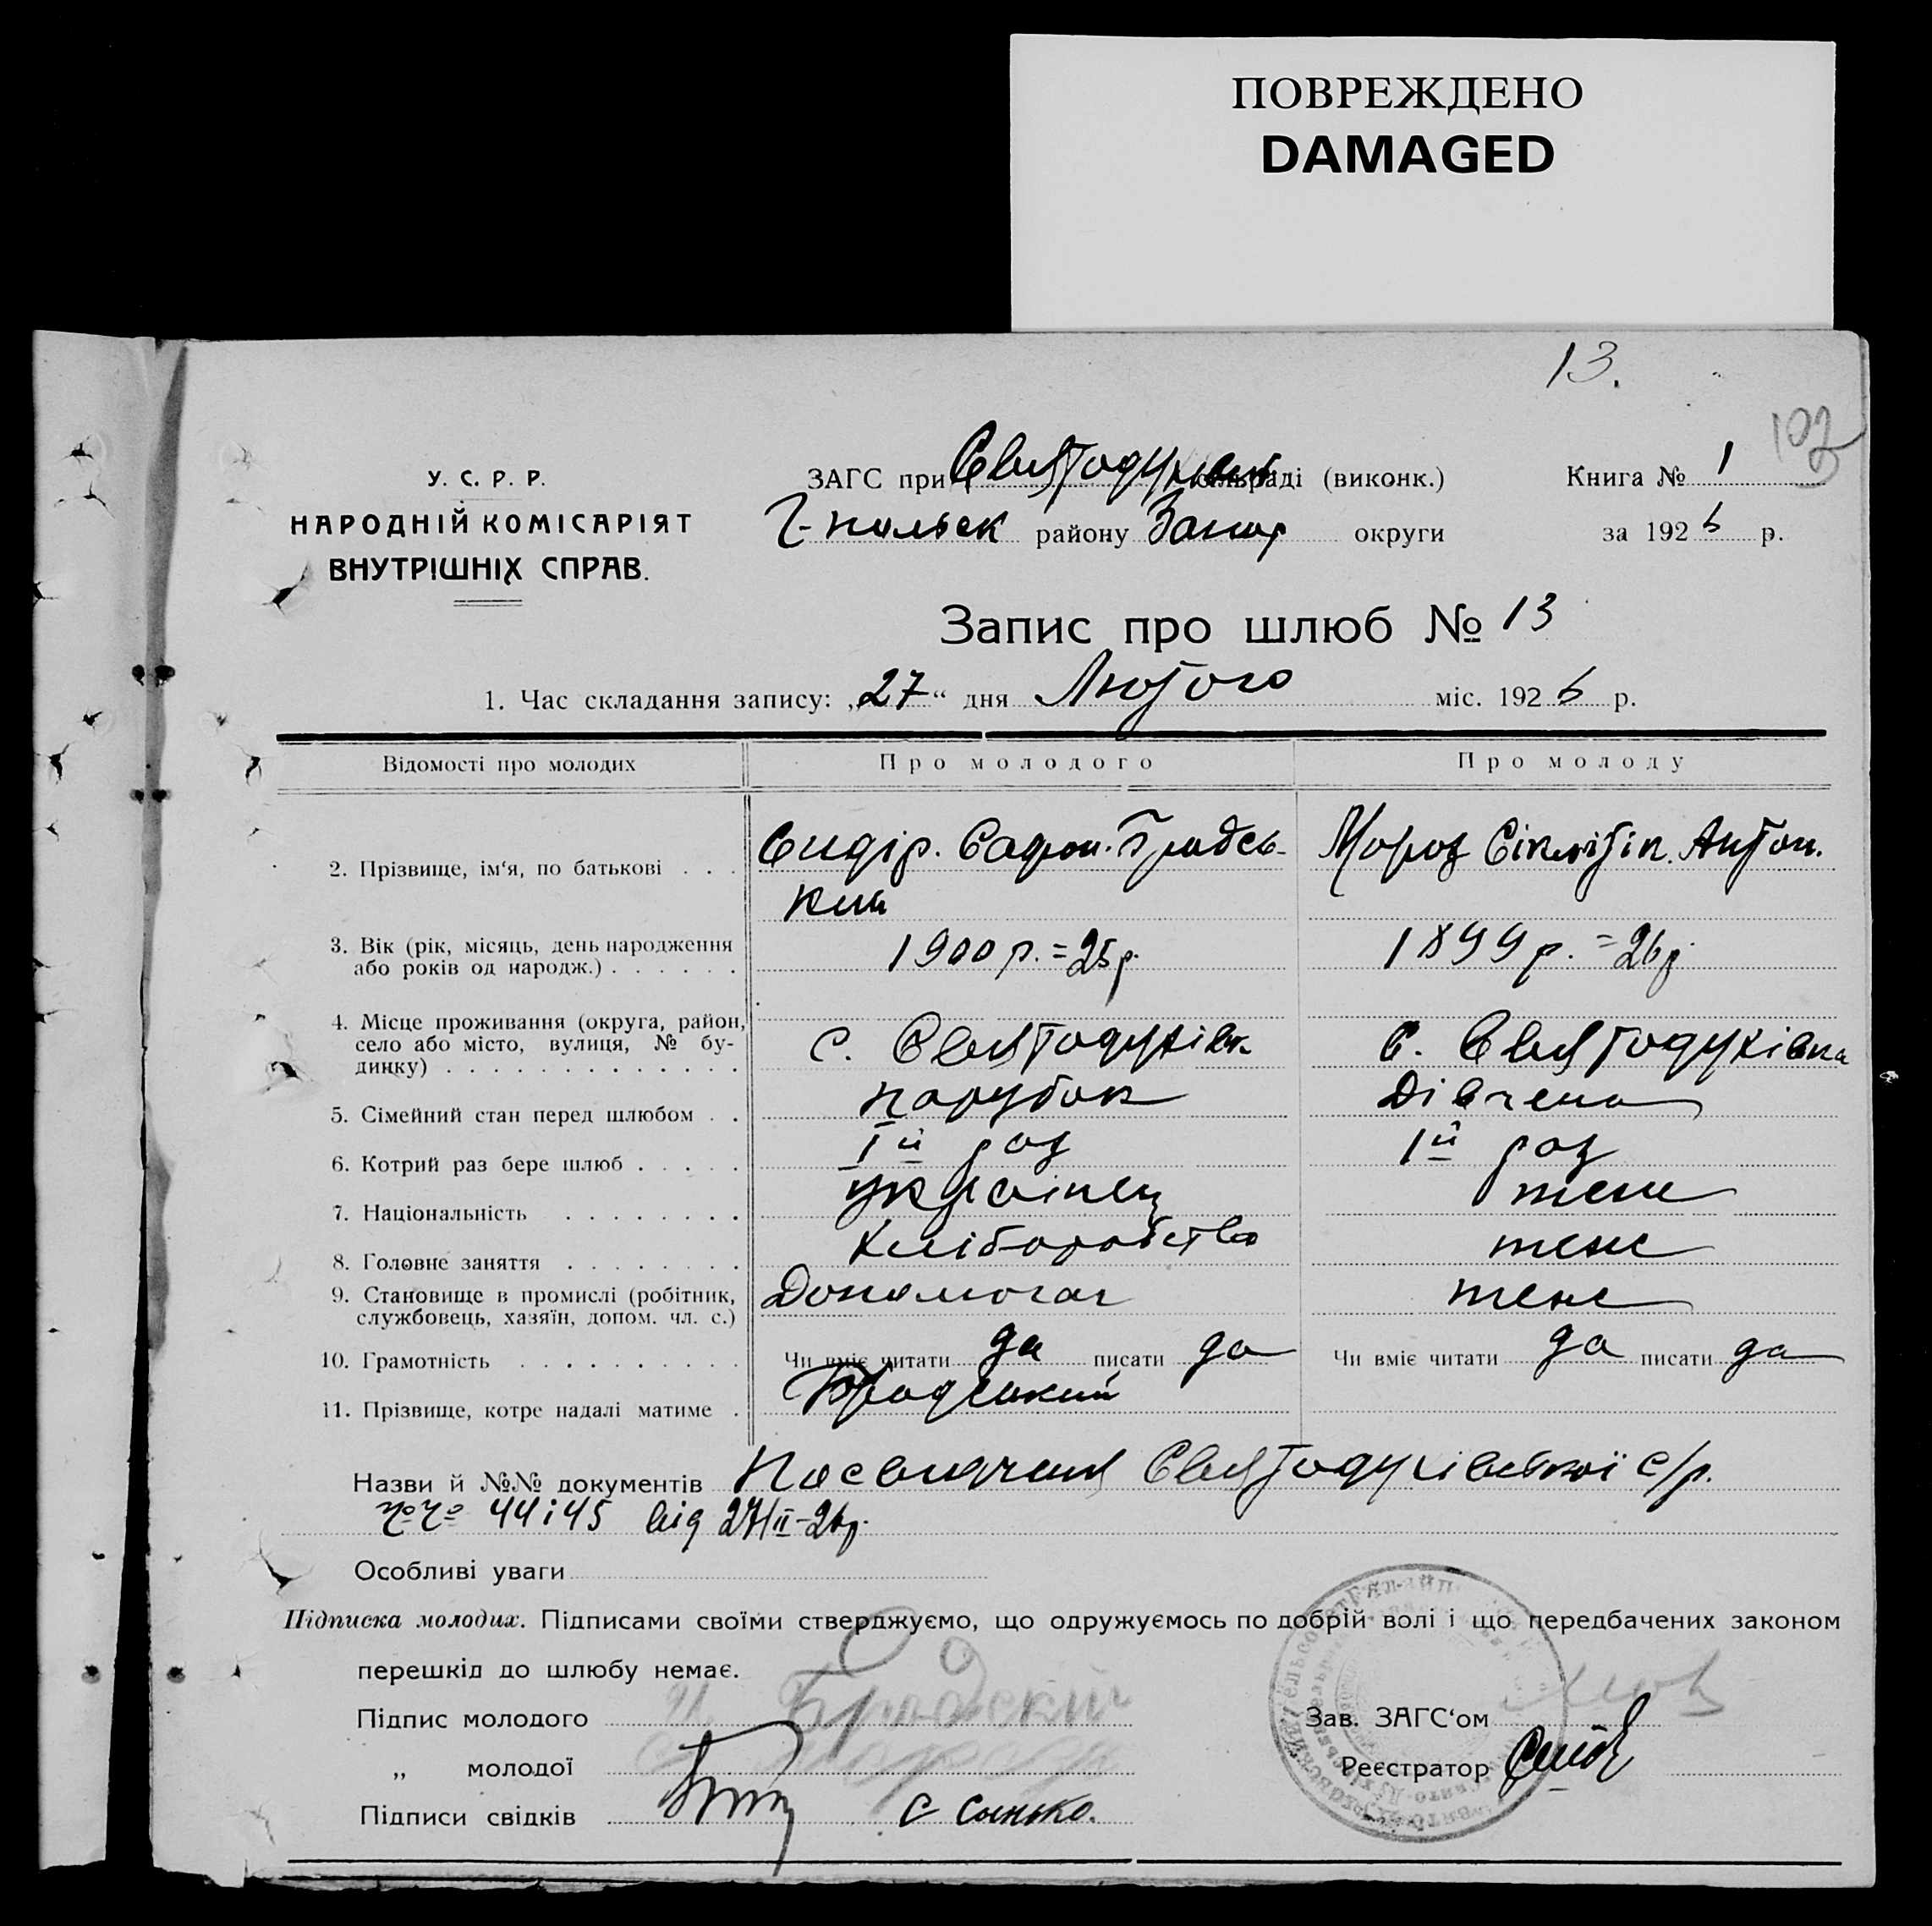 ПОВРЕЖДЕНО
DAMAGED
13.
У. С. Р. Р.
НАРОДНІЙ КОМІСАРІЯТ
ВНУТРІШНІХ СПРАВ.
ЗАГС при Святодухівс сільраді (виконк.)
Г-польск району Запор округи
Книга № 1
за 1926 р.
Запис про шлюб № 13
1. Час складання запису: „27“ дня Лютого міс. 1926 р.
Відомості про молодих
Про молодого
Про молоду
2. Прізвище, ім‘я, по батькові . . .
Сидір. Сафон. Бродсь-
кий
Мороз Антон.
3. Вік (рік, місяць, день народження
або років од народж.) . . . . . .
1900 р. = 25 р.
1899 р. = 26 р.
4. Місце проживання (округа, район,
село або місто, вулиця, № бу-
динку) . . . . . . . . . . . . .
с. Святодухівк
с. Святодухівка
5. Сімейний стан перед шлюбом . .
парубок
Дівчена
6. Котрий раз бере шлюб . . . . .
1й раз
1й раз
7. Національність . . . . . . . .
українец
теж
8. Головне заняття . . . . . . . .
Хліборобство
теж
9. Становище в промислі (робітник,
службовець, хазяїн, допом. чл. с.)
Допомогач
теж
10. Грамотність . . . . . . . . . .
Чи вміє читати да писати да
Чи вміє читати да писати да
11. Прізвище, котре надалі матиме .
Бродський
Назви й №№ документів Посвідчення Святодухівської с/р.
№№ 44 і 45 від 27/II-26р.
Особливі уваги
Підписка молодих. Підписами своїми стверджуємо, що одружуємось по добрій волі і що передбачених законом
перешкід до шлюбу немає.
Підпис молодого Бродский
„ молодої С Мороз
Підписи свідків С Сынько.
Зав. ЗАГС‘ом
Реєстратор